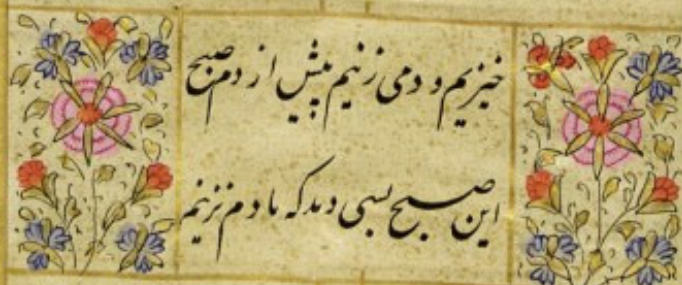 خیزیم و دمی زنیم پیش از دم صبح
این صبح بسی دمد که ما دم نزنیم